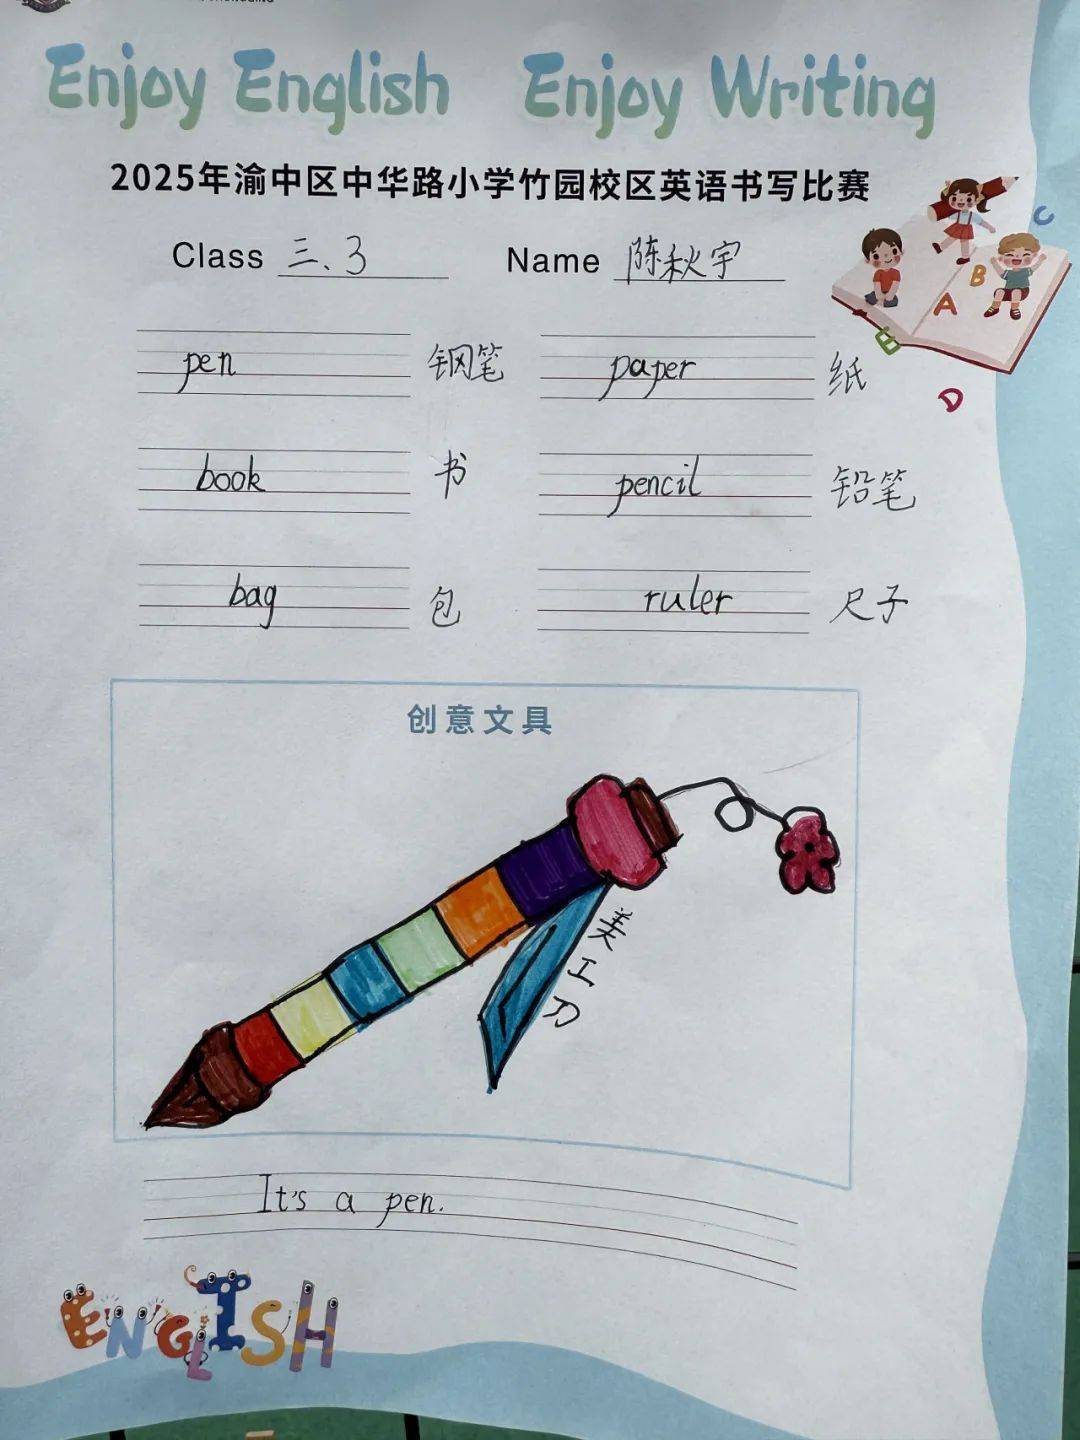 Enjoy English Enjoy Writing
2025年渝中区中华路小学竹园校区英语书写比赛
Class 三、3 Name 陈秋宇
pen 钢笔 paper 纸
book 书 pencil 铅笔
bag 包 ruler 尺子
创意文具
美工刀
It's a pen.
ENGLISH
C
B
A
E
D